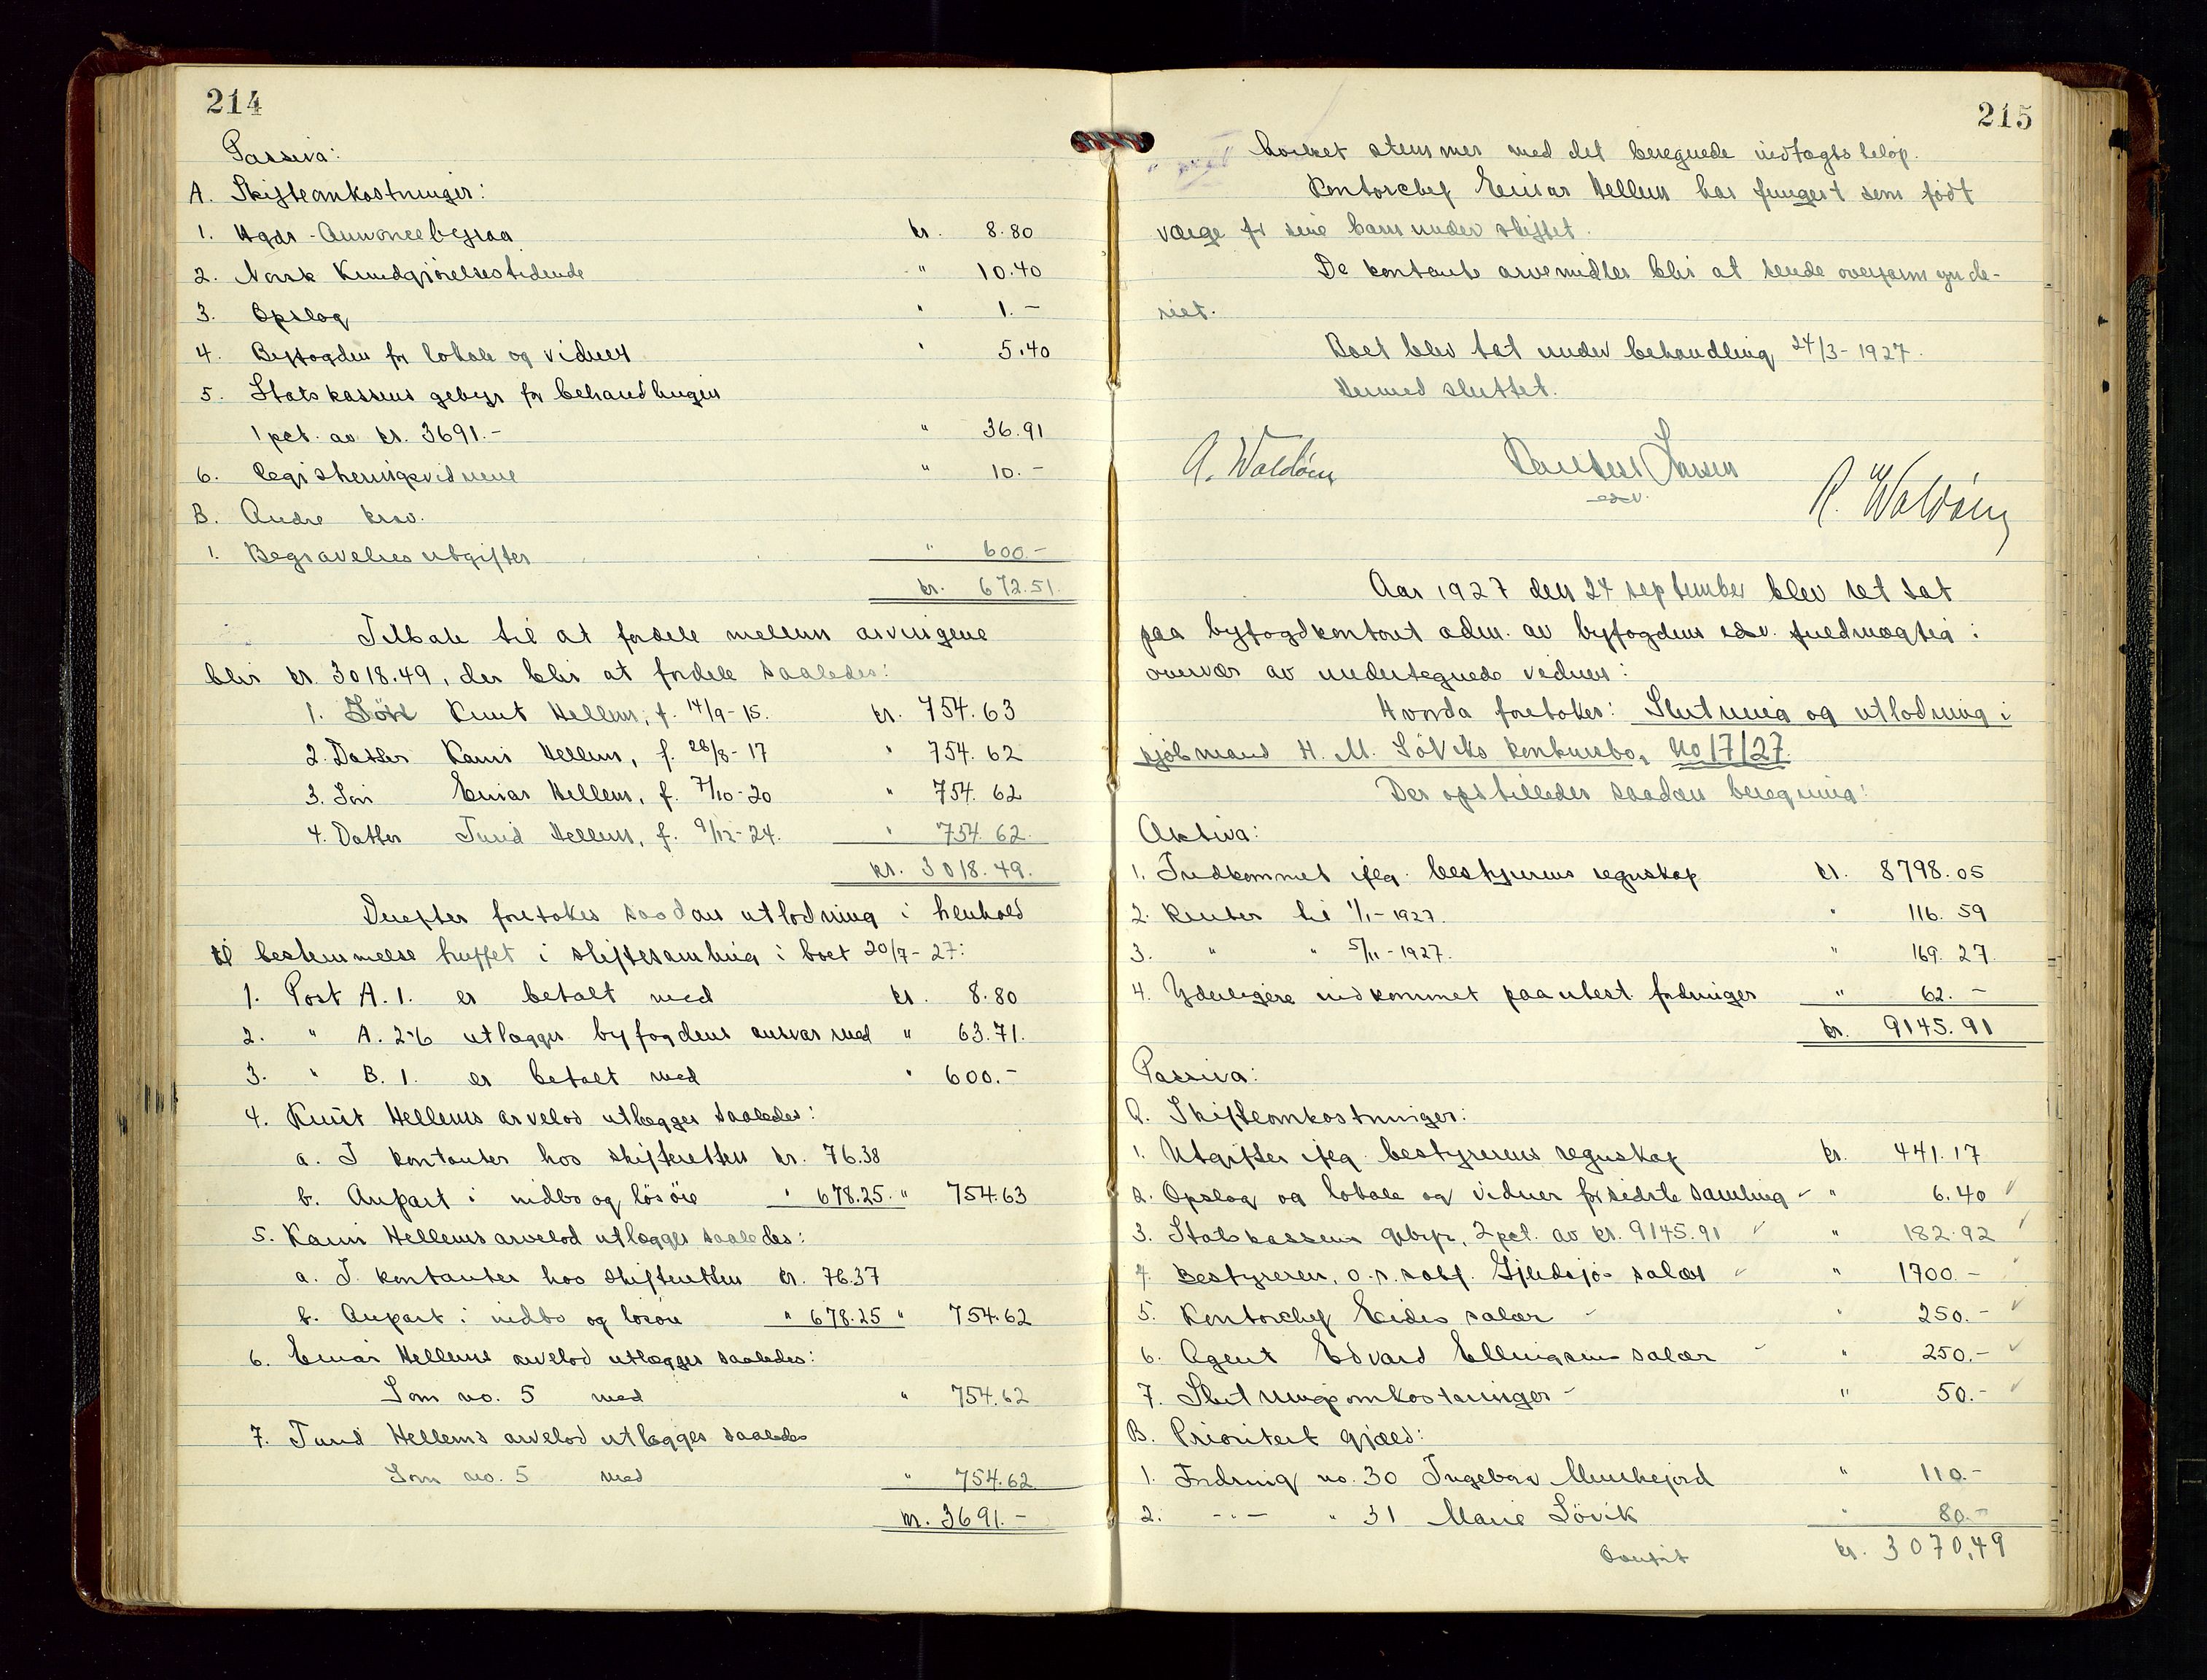 214
Passiva:
A. Skifteomkostninger:
1. Hgds - Annoncebyraa kr. 8.80
2. Norsk Kundgjørelsestidende " 10.40
3. Opslag " 1.-
4. Byfogden for lokale og vidner " 5.40
5. Statskassens gebyr for behandlingen
1 pct. av kr. 3691.- " 36.91
6. Registreringsvidnene " 10.-
B. Andre krav.
1. Begravelsesutgifter " 600.-
kr. 672.51.
Tilbake til at fordele mellem arvingene
blir kr. 3018.49, der blir at fordele saaledes:
1. Sön Knut Hellem, f. 14/9-15. kr. 754.63
2. Datter Karin Hellem, f. 26/8-17 " 754.62
3. Sön Einar Hellem, f. 7/10-20 " 754.62
4. Datter Turid Hellem, f. 9/12-24. " 754.62.
kr. 3018.49.
Derefter foretokes saadan utlodning i henhold
til bestemmelse truffet i skiftesamling i boet 20/7-27:
1. Post A. 1. er betalt med kr. 8.80
2. " A. 2-6 utlægges byfogdens ansvar med " 63.71.
3. " B. 1. er betalt med " 600.-
4. Knut Hellems arvelod utlægges saaledes:
a. I kontanter hos skifteretten kr. 76.38
b. Anpart i indbo og lösöre " 678.25. " 754.63
5. Karin Hellems arvelod utlægges saaledes:
a. I kontanter hos skifteretten kr. 76.37
b. Anpart i indbo og lösöre " 678.25 " 754.62
6. Einar Hellems arvelod utlægges saaledes:
Som no. 5 med " 754.62
7. Turid Hellems arvelod utlægges saaledes
Som no. 5 med " 754.62
kr. 3691.-
215
hvilket stemmer med det beregnede indtægtsbelöp.
Kontorchef Einar Hellem har fungert som född
værge for sine barn under skiftet.
De kontante arvemidler blir at sende overformynde-
riet.
Boet blev tat under behandling 24/3-1927.
Hermed sluttet.
A. Waldöm Larsen R. Waldöm
esv.
Aar 1927 den 24 september blev ret sat
paa byfogdkontoret adm. av byfogdens edsv. fuldmægtig i
overvær av undertegnede vidner:
Hvorda foretokes: Slutning og utlodning i
kjöbmand H. M. Söviks konkursbo, no 17/27.
Der opstilledes saadan beregning:
Aktiva:
1. Indkommet iflg. bestyrerens regnskap kr. 8798.05
2. Renter til 1/1-1927. " 116.59
3. " " 5/11-1927. " 169.27.
4. Yderligere indkommet paa utest. fordringer " 62.-
kr. 9145.91
Passiva:
A. Skifteomkostninger:
1. Utgifter iflg. bestyrerens regnskap kr. 441.17
2. Opslag og lokale og vidner for sidste samling " 6.40
3. Statskassens gebyr, 2 pct. av kr. 9145.91 " 182.92
4. Bestyreren, o.r.sakf. Gjeldsjös salær " 1700.-
5. Kontorchef Eides salær " 250.-
6. Agent Edvard Ellingsens salær " 250.-
7. Slutningsomkostninger " 50.-
B. Prioritert gjæld:
1. Fordring no. 30 Ingeborg " 110.-
2. - " - " 31 Marie Sövik " 80.-
kr. 3070,49